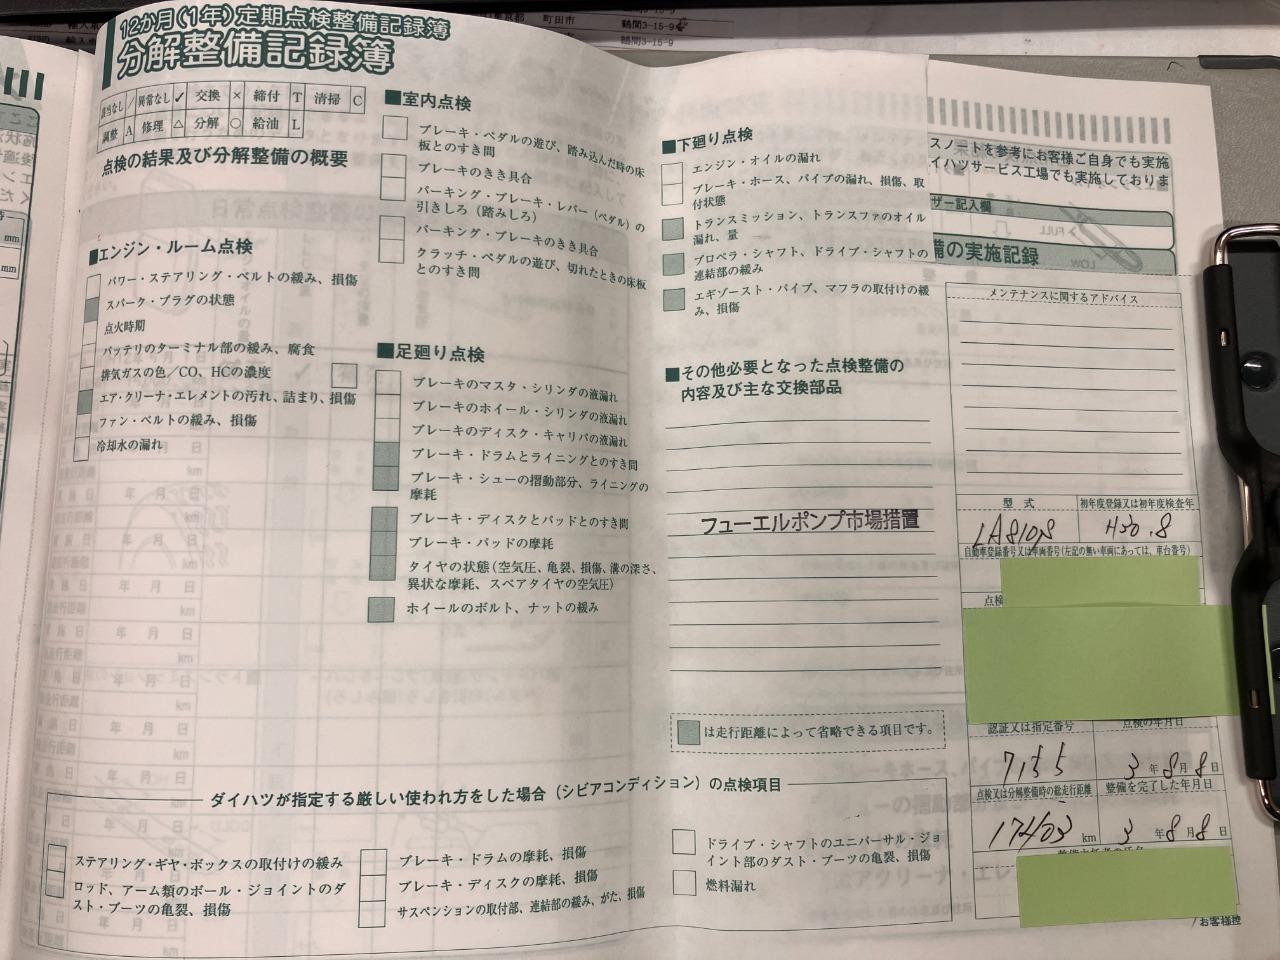 12か月(1年)定期点検整備記録簿
分解整備記録簿
該当なし / 異常なし ✓ 交換 × 締付 T 清掃 C
調整 A 修理 △ 分解 ○ 給油 L
点検の結果及び分解整備の概要
■エンジン・ルーム点検
パワー・ステアリング・ベルトの緩み、損傷
スパーク・プラグの状態
点火時期
バッテリのターミナル部の緩み、腐食
排気ガスの色/CO、HCの濃度
エア・クリーナ・エレメントの汚れ、詰まり、損傷
ファン・ベルトの緩み、損傷
冷却水の漏れ
■室内点検
ブレーキ・ペダルの遊び、踏み込んだ時の床
板とのすき間
ブレーキのきき具合
パーキング・ブレーキ・レバー(ペダル)の
引きしろ(踏みしろ)
パーキング・ブレーキのきき具合
クラッチ・ペダルの遊び、切れたときの床板
とのすき間
■足廻り点検
ブレーキのマスタ・シリンダの液漏れ
ブレーキのホイール・シリンダの液漏れ
ブレーキのディスク・キャリパの液漏れ
ブレーキ・ドラムとライニングとのすき間
ブレーキ・シューの摺動部分、ライニングの
摩耗
ブレーキ・ディスクとパッドとのすき間
ブレーキ・パッドの摩耗
タイヤの状態(空気圧、亀裂、損傷、溝の深さ、
異状な摩耗、スペアタイヤの空気圧)
ホイールのボルト、ナットの緩み
■下廻り点検
エンジン・オイルの漏れ
ブレーキ・ホース、パイプの漏れ、損傷、取
付状態
トランスミッション、トランスファのオイル
漏れ、量
プロペラ・シャフト、ドライブ・シャフトの
連結部の緩み
エギゾースト・パイプ、マフラの取付けの緩
み、損傷
■その他必要となった点検整備の
内容及び主な交換部品
フューエルポンプ市場措置
は走行距離によって省略できる項目です。
ダイハツが指定する厳しい使われ方をした場合(シビアコンディション)の点検項目
ステアリング・ギヤ・ボックスの取付けの緩み
ロッド、アーム類のボール・ジョイントのダ
スト・ブーツの亀裂、損傷
ブレーキ・ドラムの摩耗、損傷
ブレーキ・ディスクの摩耗、損傷
サスペンションの取付部、連結部の緩み、がた、損傷
ドライブ・シャフトのユニバーサル・ジョ
イント部のダスト・ブーツの亀裂、損傷
燃料漏れ
スノートを参考にお客様ご自身でも実施
イハツサービス工場でも実施しておりま
ザー記入欄
備の実施記録
メンテナンスに関するアドバイス
型 式 初年度登録又は初年度検査年
LA810S H30.8
自動車登録番号又は車両番号(左記の無い車両にあっては、車台番号)
点検
認証又は指定番号 点検の年月日
7155 3年8月8日
点検又は分解整備時の総走行距離 整備を完了した年月日
km 3年8月8日
お客様控
町田市 鶴間3-15-9
鶴間3-15-9